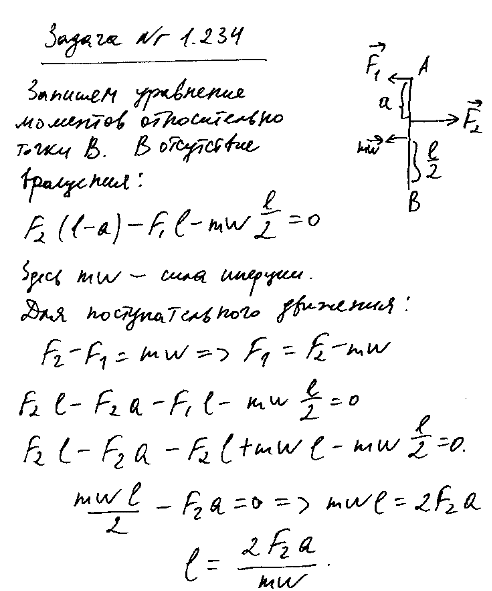 Задача № 1.234
F₁ A
a F₂
mw l/2
B
Запишем уравнение
моментов относительно
точки B. В отсутствие
вращения:
F₂ (l-a) - F₁l - mw l/2 = 0
Здесь mw - сила инерции.
Для поступательного движения:
F₂ - F₁ = mw => F₁ = F₂ - mw
F₂ l - F₂ a - F₁ l - mw l/2 = 0
F₂ l - F₂ a - F₂ l + mw l - mw l/2 = 0.
mw l/2 - F₂ a = 0 => mw l = 2F₂ a
l = 2F₂ a/mw.